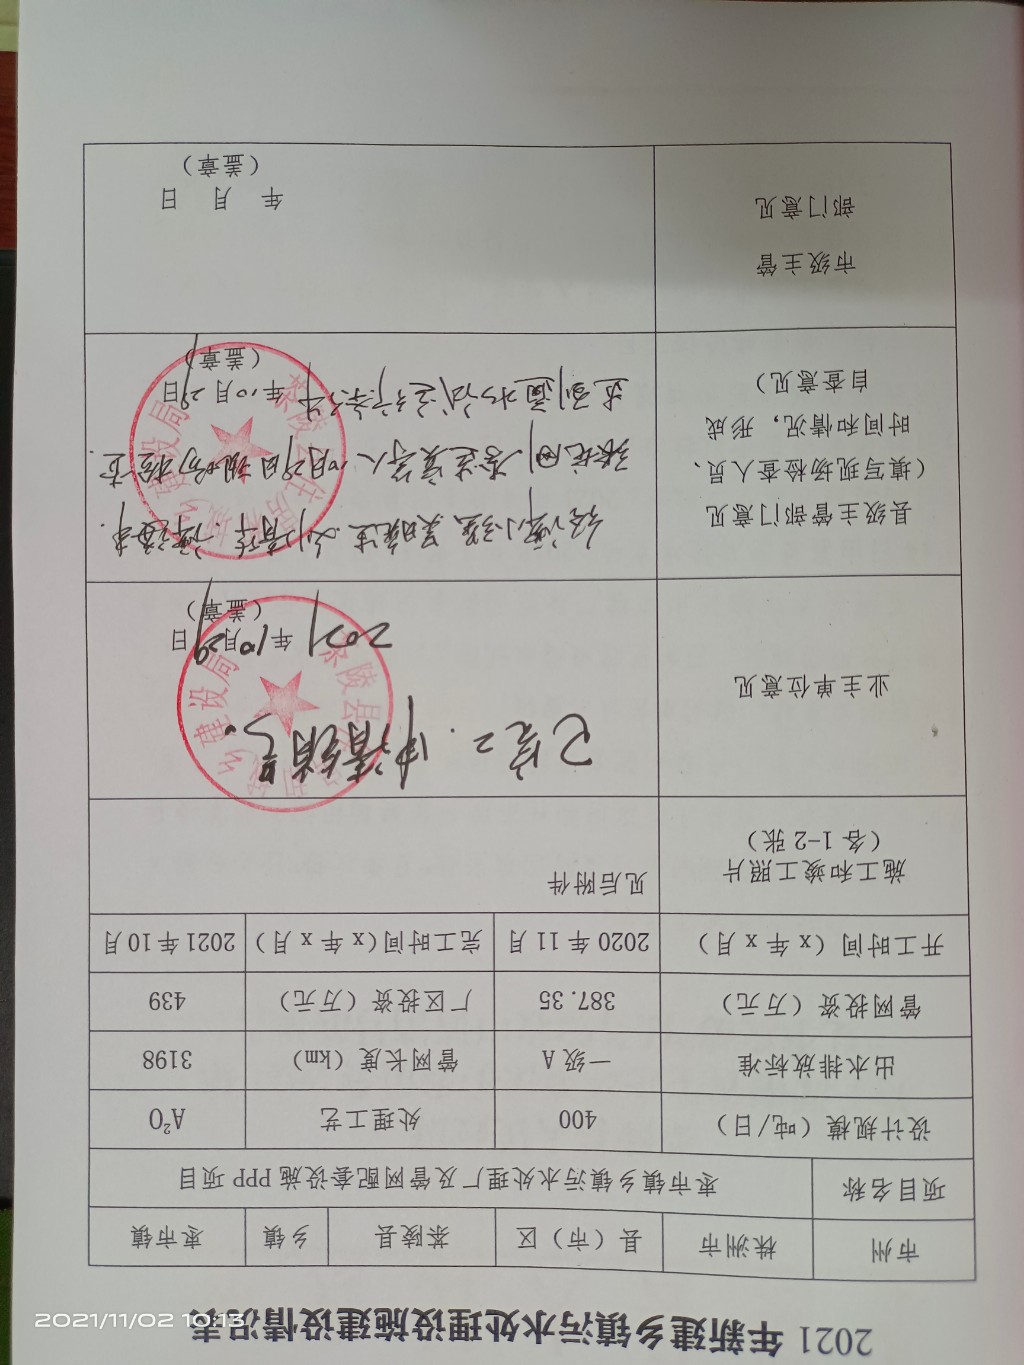 2021 年新建乡镇污水处理设施建设情况表
市州 株洲市 县（市）区 茶陵县 乡镇 枣市镇
项目名称 枣市镇乡镇污水处理厂及管网配套设施 PPP 项目
设计规模（吨/日） 400 处理工艺 A²O
出水排放标准 一级 A 管网长度（km） 3198
管网投资（万元） 387.35 厂区投资（万元） 439
开工时间（x 年 x 月） 2020 年 11 月 完工时间（x 年 x 月） 2021 年 10 月
施工和竣工照片
（各 1-2 张）
见后附件
业主单位意见
已完工.申请销号。
2021 年 10 月 29 日
（盖章）
县级主管部门意见
（填写现场检查人员、
时间和情况，形成
自查意见）
10月29日现场检查.
达到通水试运行条件
年 10 月 29 日
（盖章）
市级主管
部门意见
年 月 日
（盖章）
2021/11/02 10:13